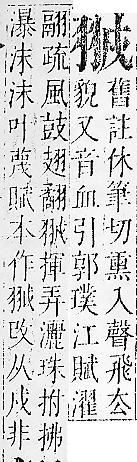 𦐍
舊註休筆切熏入聲飛去
貌又音血引郭璞江賦濯
翮疏風鼓翅揮弄灑珠拊拂
瀑沫沫叶蔑賦本作改从戌非